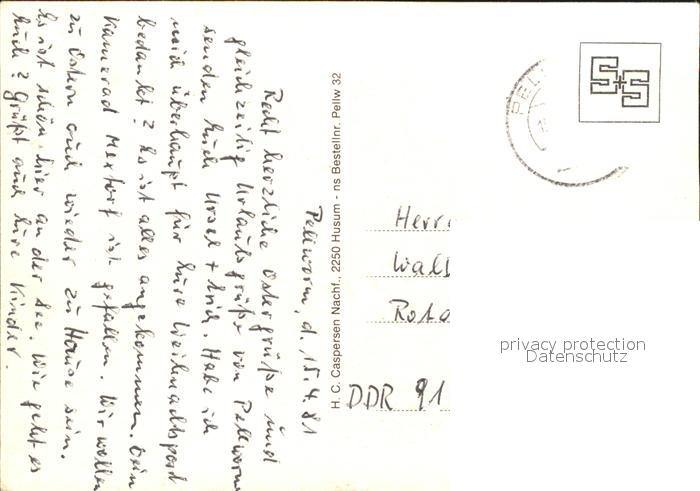 Pellworm, d. 15.4.81
Recht herzliche Ostergrüße und
gleichzeitig Urlaubsgrüße von Pellworm
senden Euch Ursel + Erich. Habe ich
mich überhaupt für Eure Weihnachtspost
bedankt? Es ist alles angekommen. Dein
Kamerad Mertorf ist gefallen. Wir wollen
zu Ostern auch wieder zu Hause sein.
Es ist schön hier an der See. Wie geht es
Euch? Grüßt auch Eure Kinder.
H. C. Caspersen Nachf., 2250 Husum - ns Bestellnr. Pellw 32
PEL
S+S
Herr
Wal
Rosa
DDR 91
privacy protection
Datenschutz